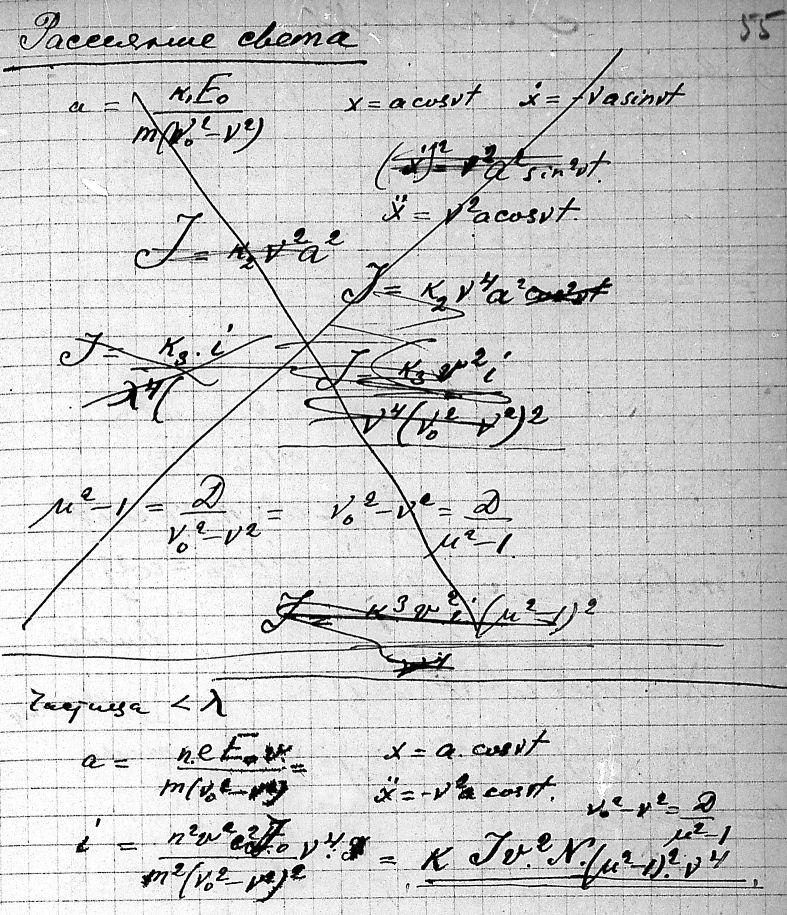 55
Рассеяние света
a = K₁E₀ / m(ν₀² − ν²)   x = a cos νt   ẋ = −νa sin νt
(ẋ)² = ν²a² sin² νt.
ẍ = ν²a cos νt.
J = K₂ ν² a²
J = K₂ ν⁴ a² cos² νt
J = K₃ · i / λ⁴(
J = K₃ v² i / ν⁴(ν₀² ν²)²
μ² − 1 = D / ν₀² − ν² =   ν₀² − ν² = D / μ² − 1.
J = K³ v² i (μ² − 1)²
Частица < λ
a = n.e E₀ v. / m(ν₀² − ν²) =   x = a. cos νt
ẍ = −ν²a cos νt.
ν₀² − ν² = D / μ² − 1
i = n²v²e²J₀ ν⁴ / m²(ν₀² − ν²)² = K J v.² N.(μ² − 1)². ν⁴